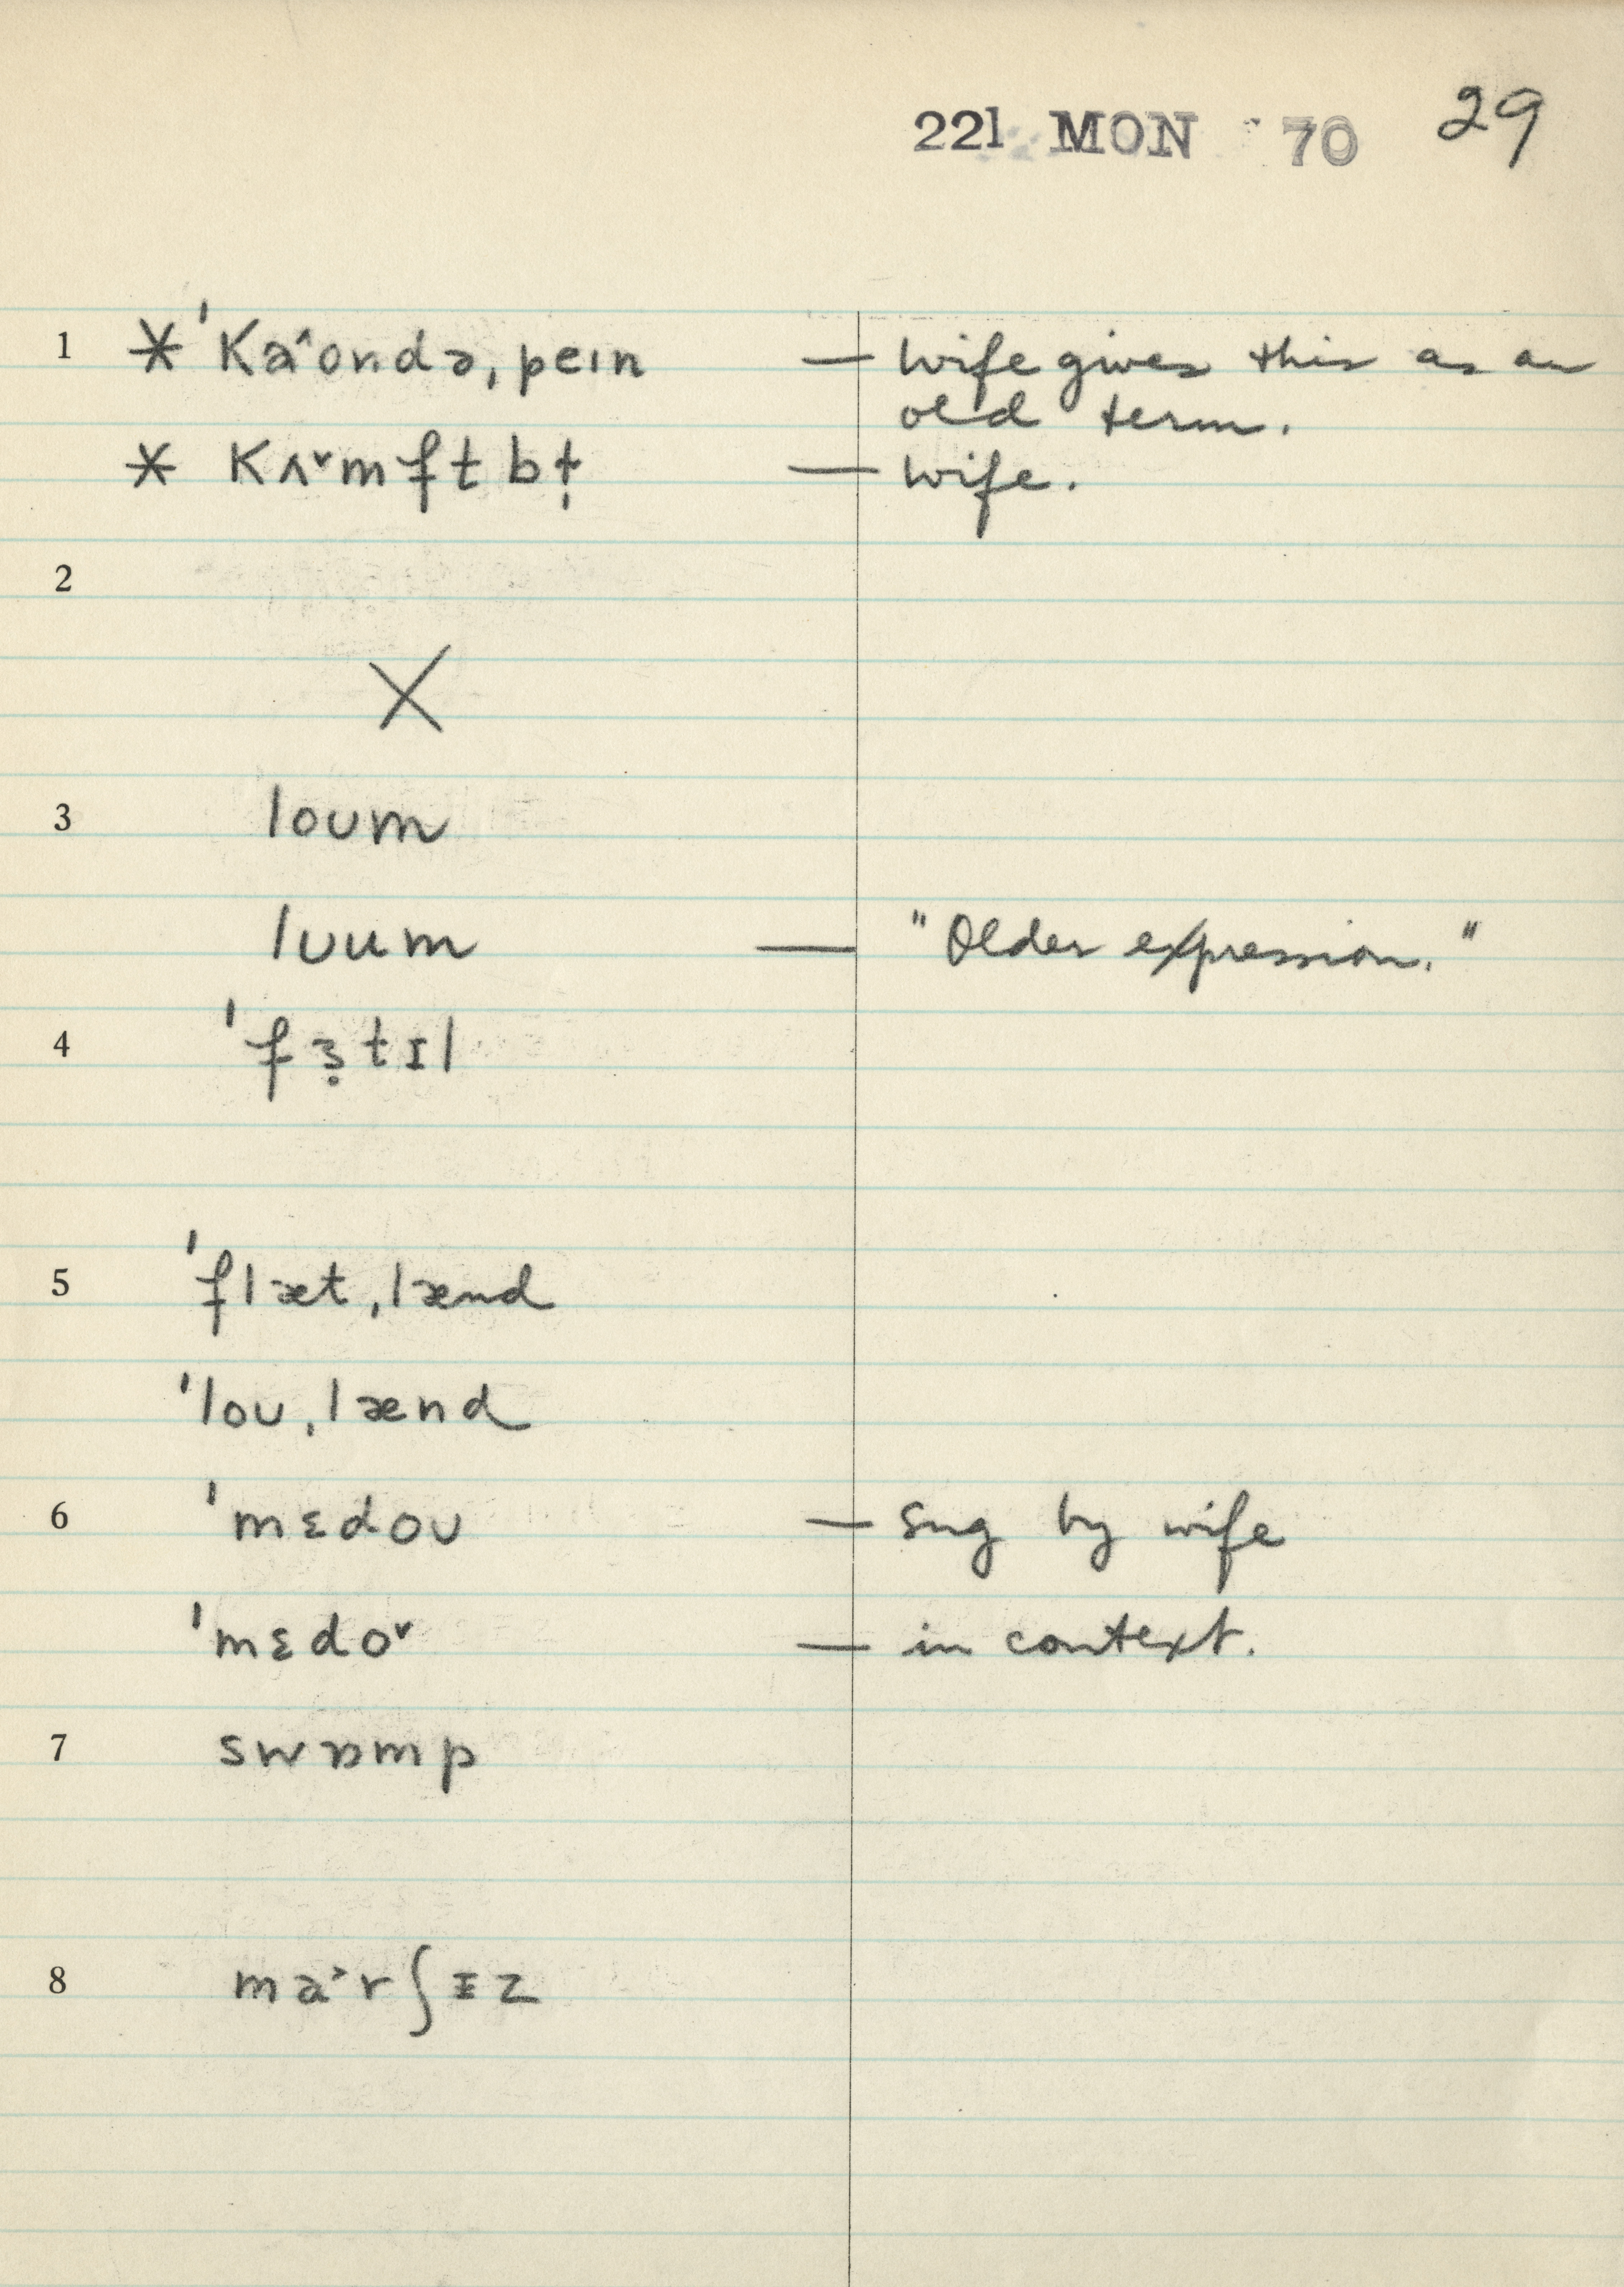 221 MON 70 29
1 * ˈKa˄ondə, pein — Wife gives this as an
old term.
* Kʌ˅mftbţ — Wife.
2
X
3 loum
luum — "Older expression."
4 ˈfɜ̣tɪl
5 ˈflæt ˌlænd
ˈloʊ ˌlænd
6 ˈmɛdoʊ — sug by wife
ˈmɛdo˅ — in context.
7 swɒmp
8 ma˃rʃɪz